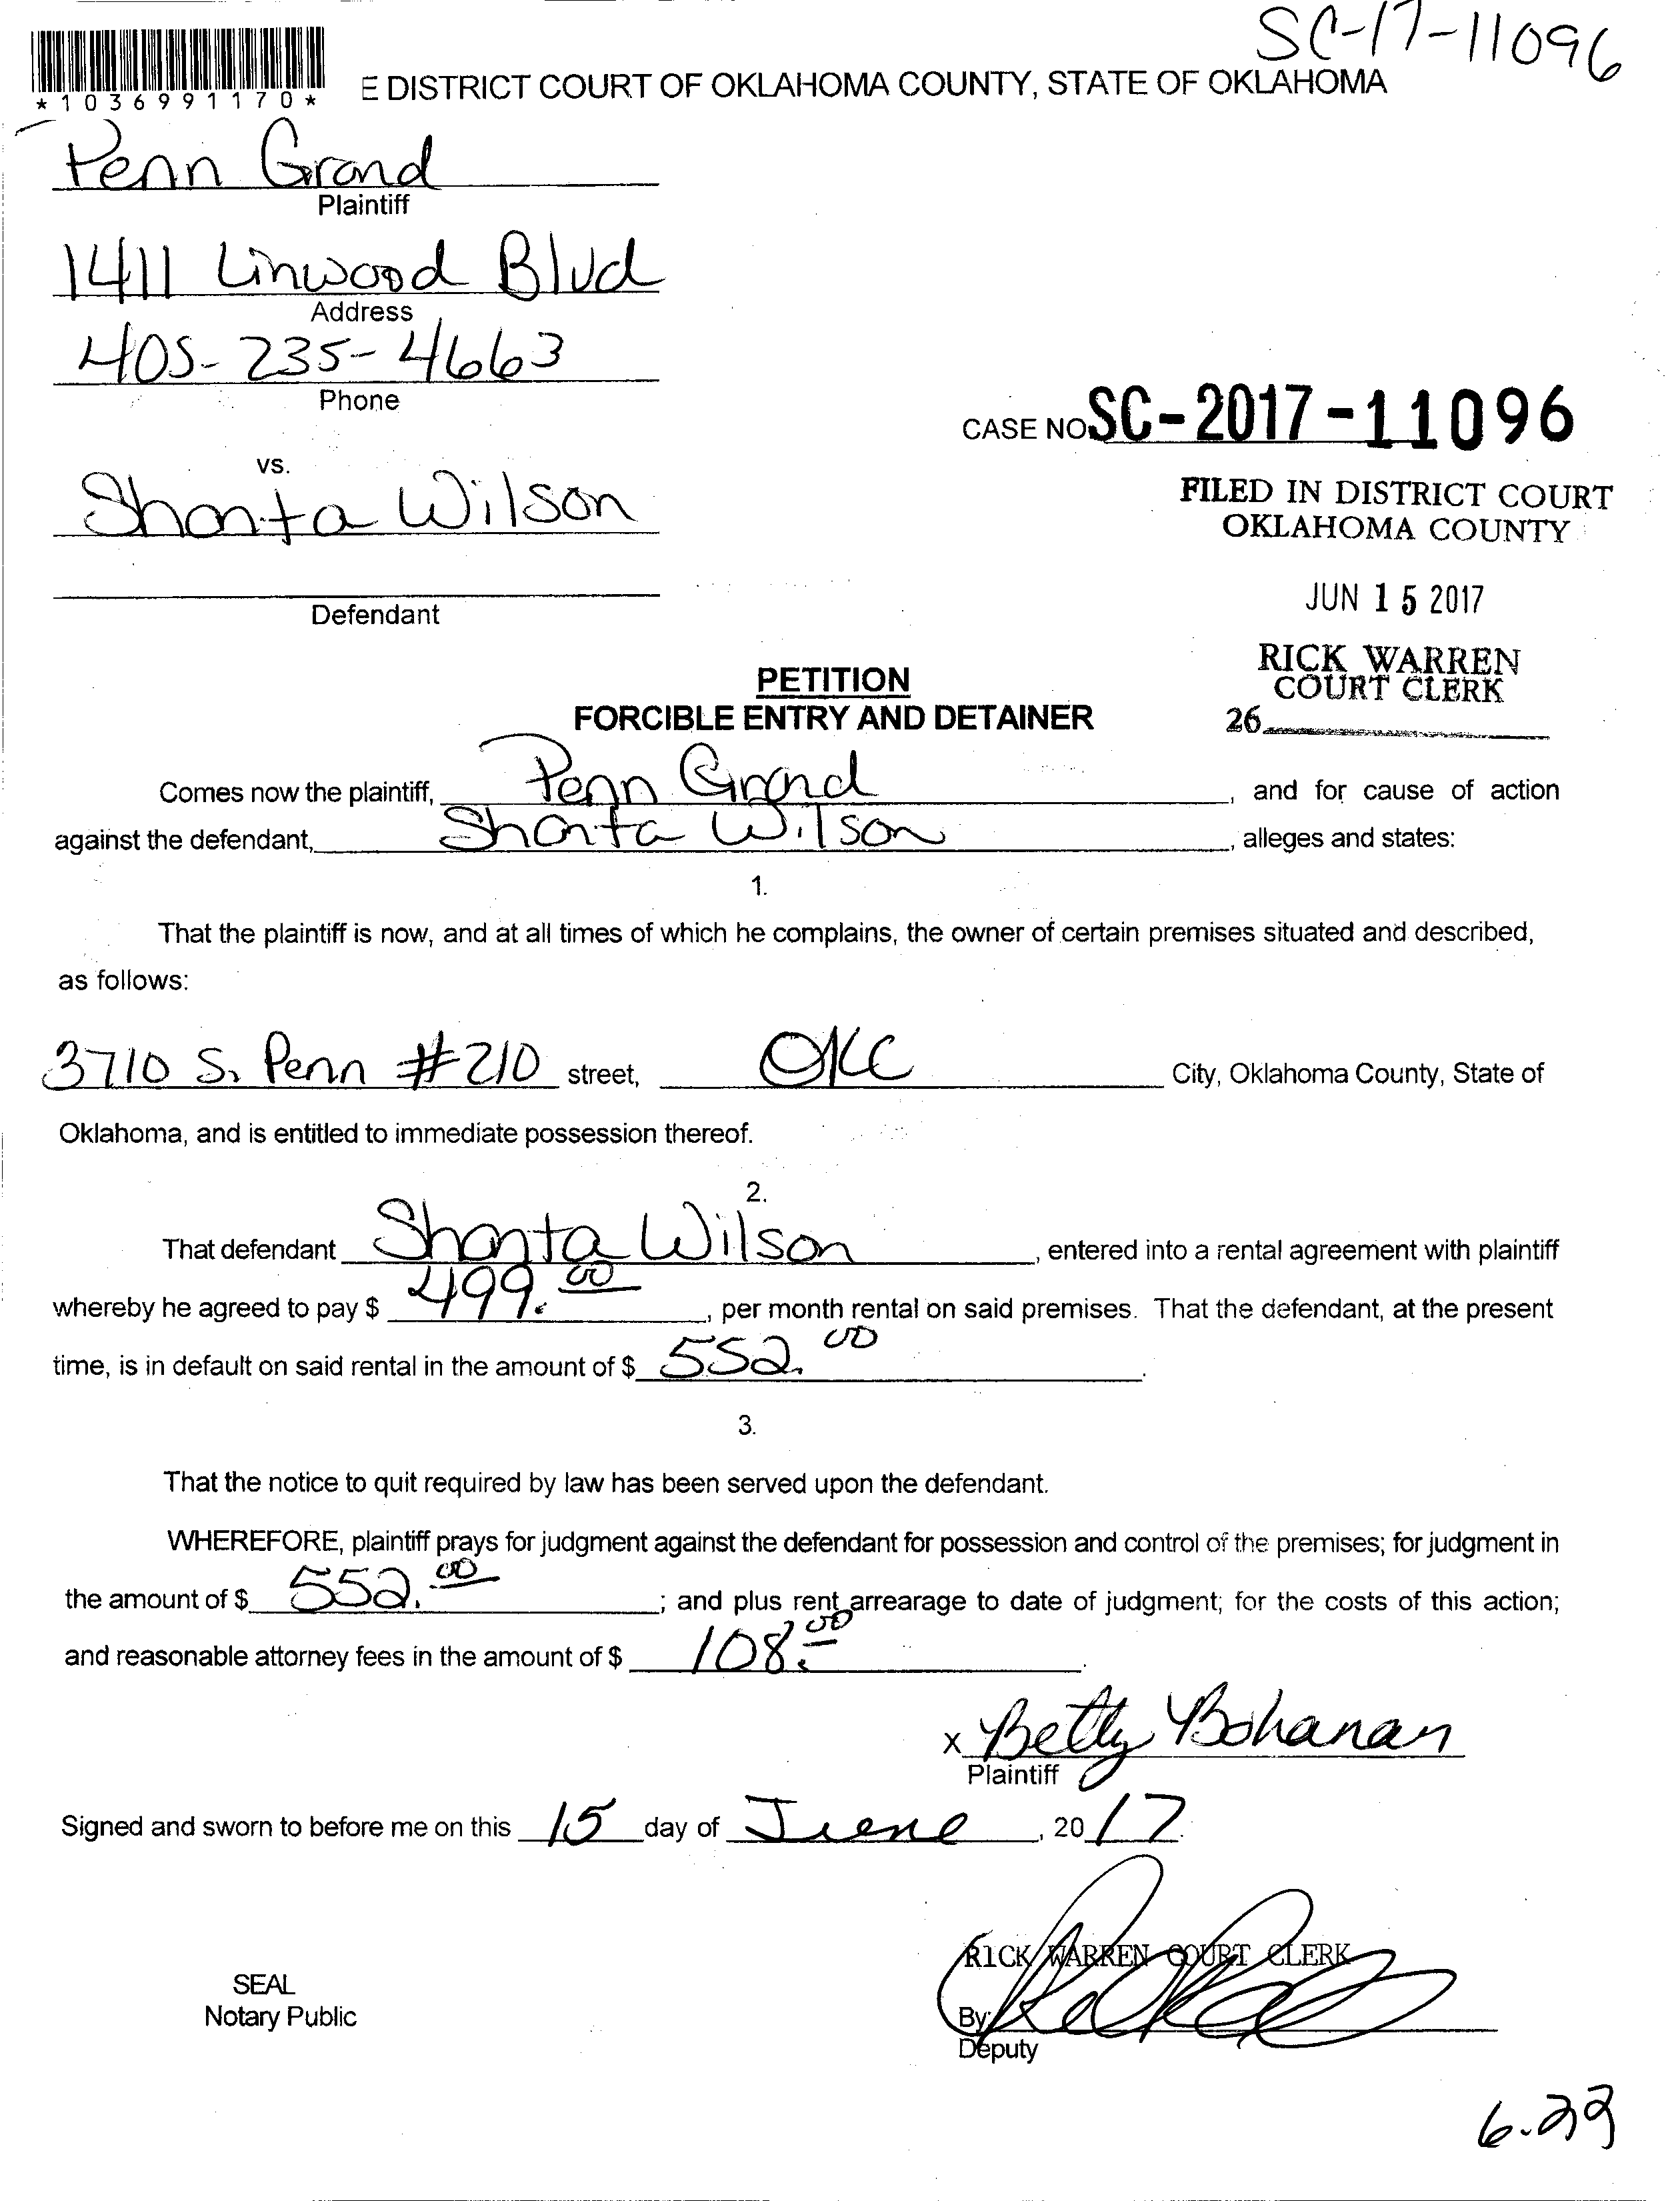 SC-17-11096
*1036991170*
E DISTRICT COURT OF OKLAHOMA COUNTY, STATE OF OKLAHOMA
Penn Grand
Plaintiff
1411 Linwood Blvd
Address
405-235-4663
Phone
CASE NO. SC-2017-11096
vs.
Shanta Wilson
FILED IN DISTRICT COURT
OKLAHOMA COUNTY
JUN 15 2017
Defendant
RICK WARREN
COURT CLERK
26
PETITION
FORCIBLE ENTRY AND DETAINER
Comes now the plaintiff, Penn Grand, and for cause of action
against the defendant, Shanta Wilson, alleges and states:
1.
That the plaintiff is now, and at all times of which he complains, the owner of certain premises situated and described,
as follows:
3710 S. Penn #210 street, OKC City, Oklahoma County, State of
Oklahoma, and is entitled to immediate possession thereof.
2.
That defendant Shanta Wilson, entered into a rental agreement with plaintiff
whereby he agreed to pay $ 499.00, per month rental on said premises. That the defendant, at the present
time, is in default on said rental in the amount of $ 552.00.
3.
That the notice to quit required by law has been served upon the defendant.
WHEREFORE, plaintiff prays for judgment against the defendant for possession and control of the premises; for judgment in
the amount of $ 552.00; and plus rent arrearage to date of judgment; for the costs of this action;
and reasonable attorney fees in the amount of $ 108.00.
x Betty Bohanan
Plaintiff
Signed and sworn to before me on this 15 day of June, 2017.
RICK WARREN COURT CLERK
SEAL
Notary Public
By:
Deputy